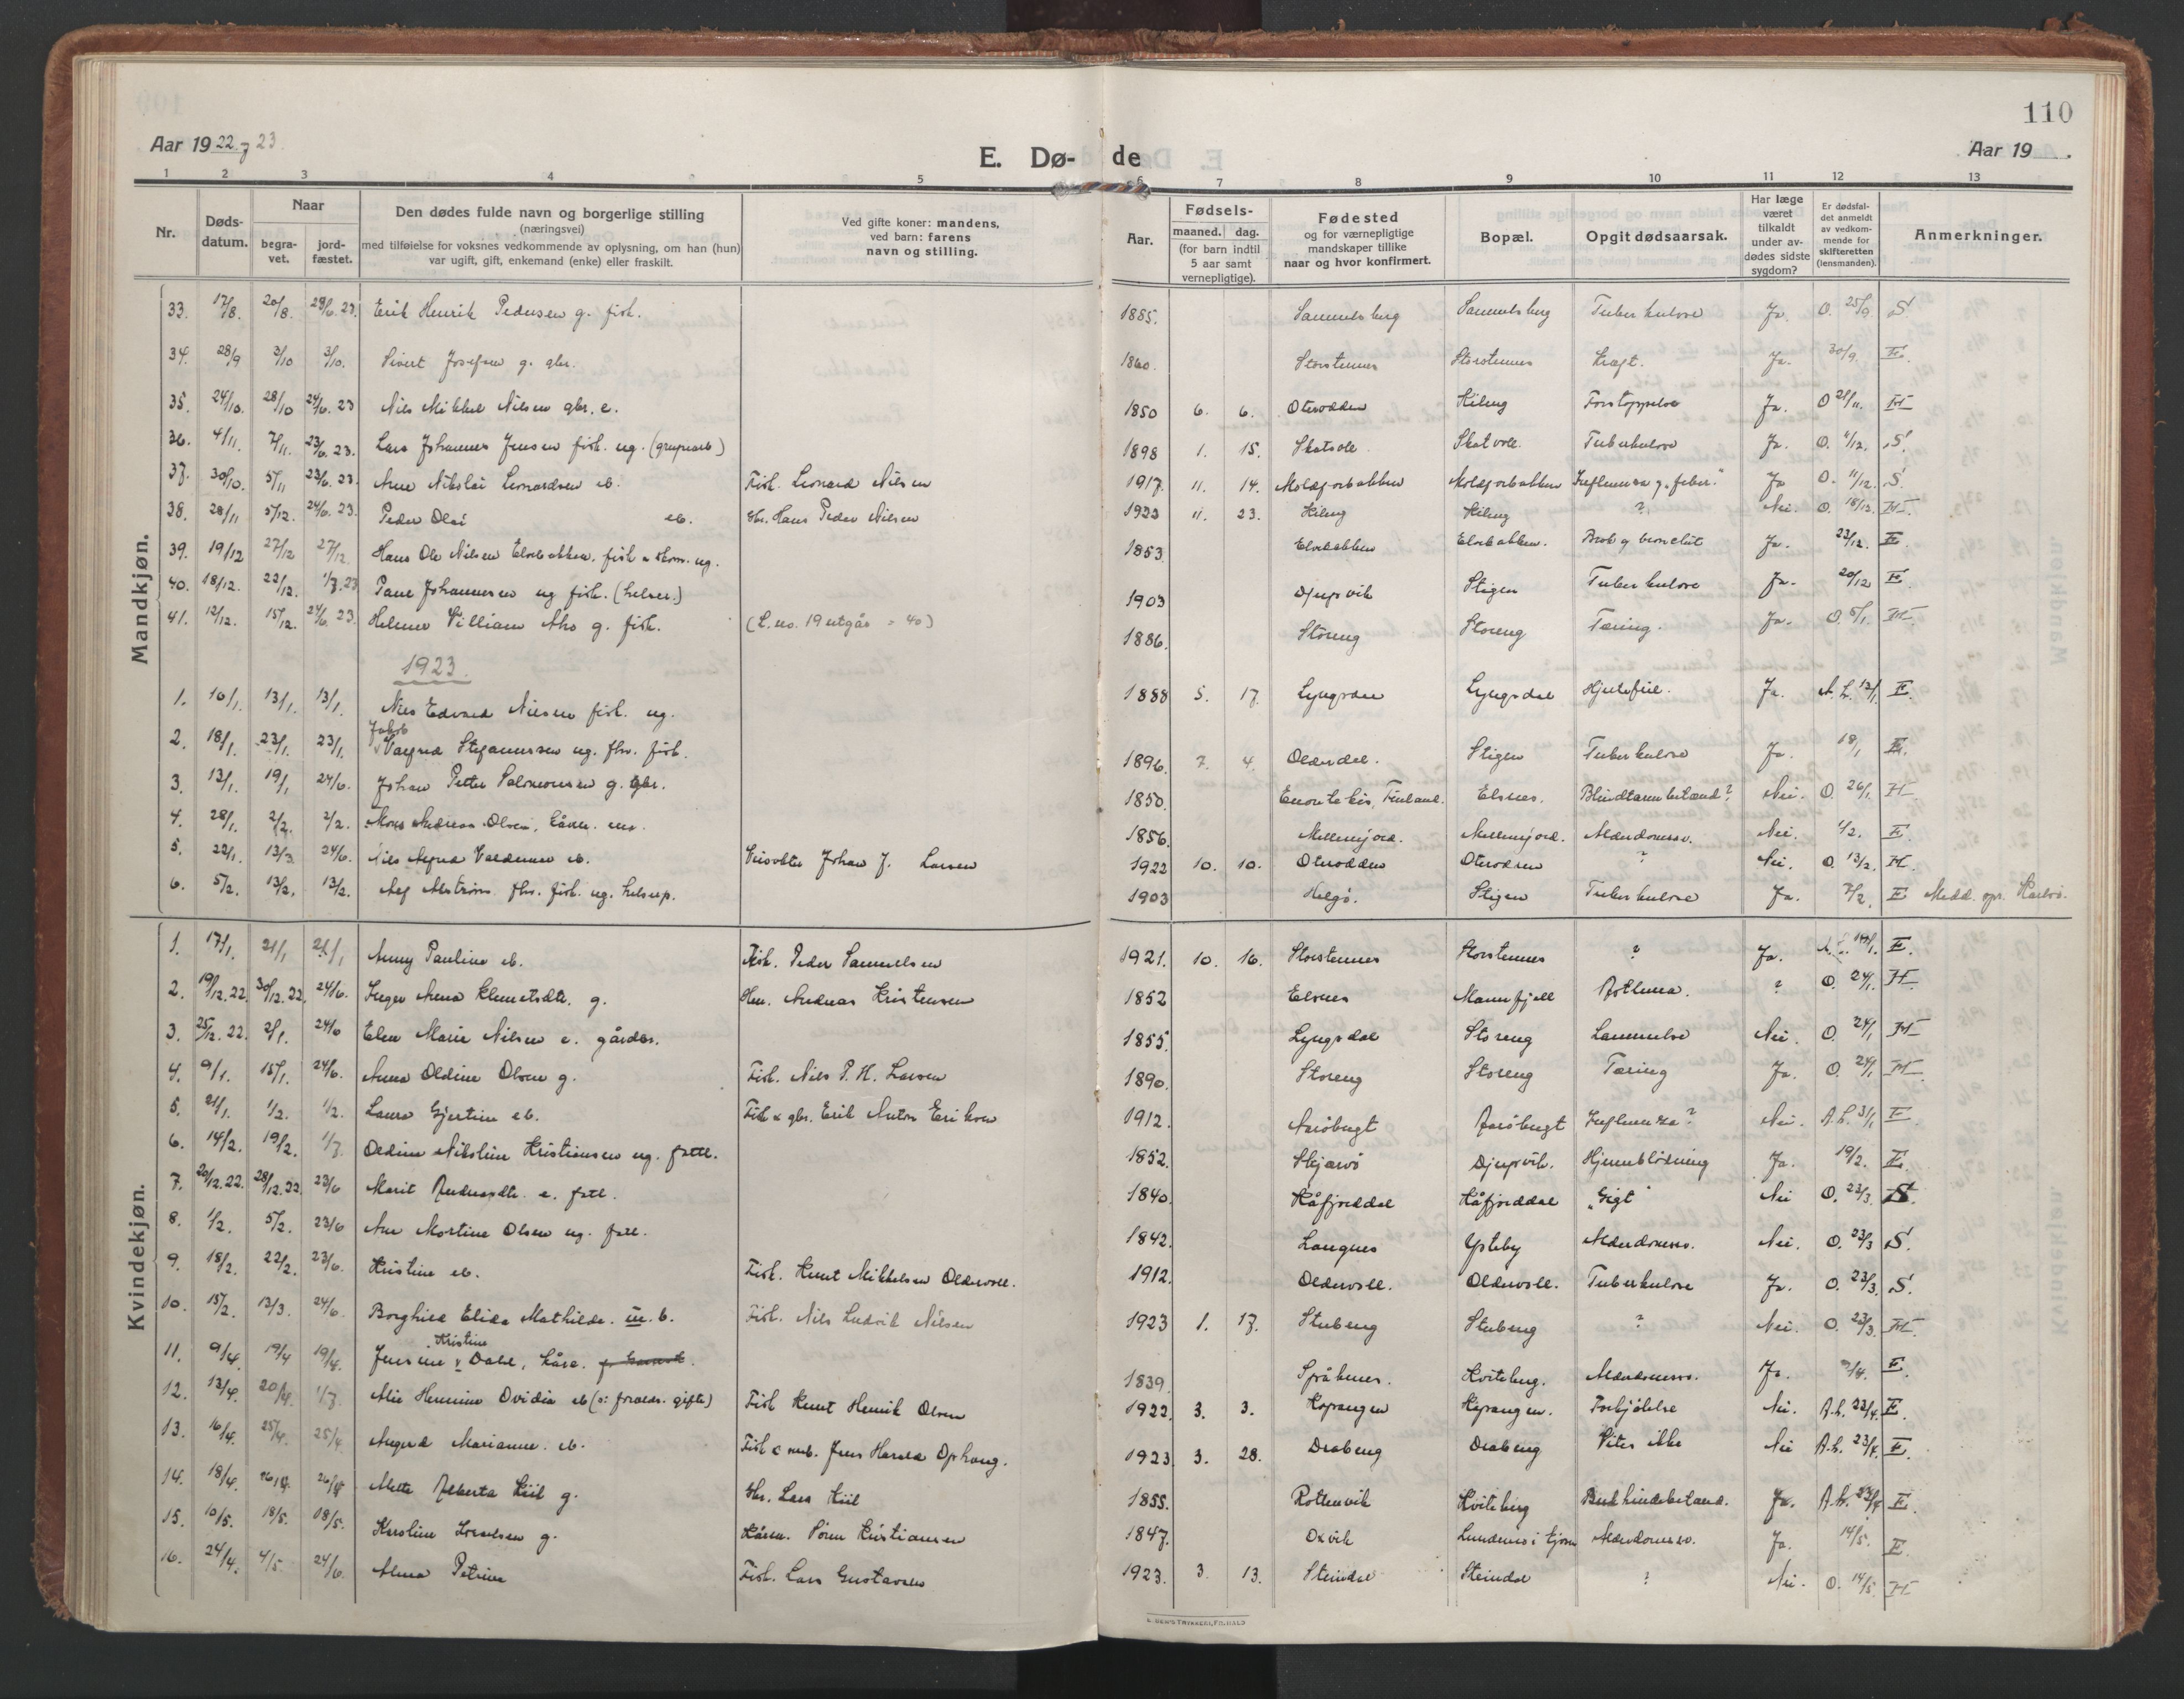 110
Aar 1922 og 23.
E. Dø- de
Aar 19 .
1 2 3 4 5 6 7 8 9 10 11 12 13
Nr.
Døds-datum.
Naar
begra-vet.
jord-fæstet.
Den dødes fulde navn og borgerlige stilling
(næringsvei)
med tilføielse for voksnes vedkommende av oplysning, om han (hun)
var ugift, gift, enkemand (enke) eller fraskilt.
Ved gifte koner: mandens,
ved barn: farens
navn og stilling.
Aar.
Fødsels-
maaned. dag.
(for barn indtil
5 aar samt
vernepligtige).
Fødested
og for værnepligtige
mandskaper tillike
naar og hvor konfirmert.
Bopæl.
Opgit dødsaarsak.
Har læge
været
tilkaldt
under av-
dødes sidste
sygdom?
Er dødsfal-
det anmeldt
av vedkom-
mende for
skifteretten
(lensmanden).
Anmerkninger.
Mandkjøn.
33. 17/8. 20/8. 29/6. 23. Erik Henrik Pedersen g. fisk. 1885. Samuelsberg Samuelsberg Tuberkulose Ja. O. 25/9 S.
34. 28/9 3/10 3/10. Sivert Josefsen g. gbr. 1860. Storstennes Storstennes Kræft. Ja. 30/9. E.
35. 24/10. 28/10 24/6. 23 Nils Mikkel Nilsen gbr. e. 1850 6. 6. Oterodden Kileng Forstoppelse Ja. O 21/11. H
36. 4/11. 7/11. 23/6. 23. Lars Johannes Jensen fisk. ug. (grupearb) 1898 1. 15. Skatvoll Skatvoll. Tuberkulose Ja. O. 4/12. S.
37. 30/10. 5/11 23/6. 23. Arne Nikolai Leonardsen eb. Fisk. Leonard Nilsen 1917. 11. 14. Moldforbakken Moldforbakken Influensa g. feber." Ja O. 11/12. S.
38. 28/11 5/12. 24/6. 23. Peder Olai eb. Gbr. Hans Peder Nilsen 1922 11. 23. Kileng Kileng ? Nei. O. 18/12. H.
39. 19/12 27/12 27/12. Hans Ole Nilsen Elvebakken, fisk & skom. ug. 1853. Elvebakken Elvebakken. Brok og Ja. 23/12. E.
40. 18/12. 22/12. 1/7. 23 Paul Johannesen ug fisk. (helser.) 1903 Djupvik Stigen Tuberkulose Ja. 20/12 E.
41. 12/12. 15/12. 24/6. 23. Helmer Villiam Aho g. fisk. (L. no. 19 utgår = 40) 1886. Storeng Storeng Tæring. Ja. O. 5/1. H.
1923.
1. 10/1. 13/1. 13/1. Nils Edvard Nilsen fisk. ug. 1888 5. 17. Lyngsdal Lyngsdal Hjertefeil. Ja. A. L. 13/1 E.
2. 18/1. 23/1. 23/1. Jakob Valfred Stefanussen ug. fhv. fisk. 1896. 7. 4. Olderdal. Stigen Tuberkulose Ja. 18/1 E.
3. 13/1. 19/1 24/6. Johan Petter Salomonsen g. gbr. 1850. Enontekis, Finland. Elsnes. Blindtarmbetænd? Nei. O. 26/1. H.
4. 28/1. 2/2. 2/2. Mons Andreas Olsen, kårm. enk. 1856. Mellemjord. Mellemjord. Alderdomssv. Nei. 1/2. E.
5. 22/1. 13/3 24/6. Nils Alfred Valdemar eb. Veivokter Johan J. Larsen 1922 10. 10. Oterodden Oterodden ? Nei. O. 13/2. H.
6. 5/2. 13/2. 13/2. Alf Alstrøm. fhv. fisk. ug. helsep. 1903 Helgø. Stigen Tuberkulose Ja. 7/2. E Medd. spr. Karlsø.
Kvindekjøn.
1. 17/1. 21/1 21/1 Anny Pauline eb. Fisk. Peder Samuelsen 1921. 10. 16. Storstennes Storstennes ? Ja. A. L. 14/1. E.
2. 19/12. 22. 30/12. 22. 24/6. Inger Anna Klemetsdtr. g. Hm. Andreas Kristensen 1852 Elsnes Mannfjell Astma. ? O. 24/1. H.
3. 25/12. 22. 2/1. 24/6 Elen Marie Nilsen e. gårdbr. 1855. Lyngsdal Storeng Lammelse Nei. O. 24/1 H
4. 9/1. 15/1. 24/6. Anna Oldine Olsen g. Fisk. Nils P. H. Larsen 1890. Storeng Storeng Tæring Ja. O. 24/1 H.
5. 21/1. 1/2. 1/2. Laura Gjertine eb. Fisk & gbr. Erik Anton Erikson 1912. Aarøbugt Aarøbugt Influensa? Nei. A. L. 31/1 E.
6. 14/2. 19/2. 1/7. Oldine Nikoline Kristiansen ug. fattl. 1852. Skjærvø Djupvik. Hjerneblødning Ja. 19/2. E.
7. 20/12. 22. 28/12. 22. 23/6 Marit Andreasdtr. e. fattl. 1840. Kåfjorddal Kåfjorddal "Gigt" Nei O. 23/3. S.
8. 1/2. 5/2. 23/6 Ane Martine Olsen ug. fattl. 1842. Langnes Ysteby Alderdomssv. Nei. O. 23/3 S.
9. 18/2. 22/2. 23/6. Kristine eb. Fisk. Knut Mikkelsen Oldervoll. 1912. Oldervoll. Oldervoll. Tuberkulose Ja. O. 23/3. S.
10. 15/2. 13/3. 24/6. Borghild Elida Mathilde. u. b. Fisk. Nils Ludvik Nilsen 1923 1. 17. Stubeng Stubeng ? Nei. O. 23/3. H.
11. 9/4. 19/4 19/4. Jensine Kristine Dahl, kåre. 1839. Spåknes. Kviteberg. Alderdomssv. Ja. /4. E.
12. 13/4. 20/4. 1/7. Alie Hermine Ovidia eb (o: foreldr. gifte) Fisk Knut Henrik Olsen 1922. 3. 3. Koppangen Koppangen. Forkjølelse Nei. A. L. 22/4. E.
13. 16/4. 25/4. 25/4. Angerd Marianne. eb. Fisk & Jens Harald Ophaug. 1923. 3. 28. Drabeng Drabeng Vites ikke Nei A. L. 23/4. E.
14. 18/4. 26/4. 26/4 Mette Alberta Kiil g. Gbr. Lars Kiil 1855. Rottenvik Kviteberg Brukhindebetænd. Ja. A. L. 23/4 E.
15. 10/5. 18/5. 18/5. Karoline Lorentsen g. Kårm. Søren Kristiansen 1847. Oxvik Lundenes i Alderdomssv. Ja. 14/5. E.
16. 24/4. 4/5. 24/6. Alma Petrine Fisk. Lars Gustavsen 1923. 3. 13. Steindal Steindal ? Nei. O. 14/5 H